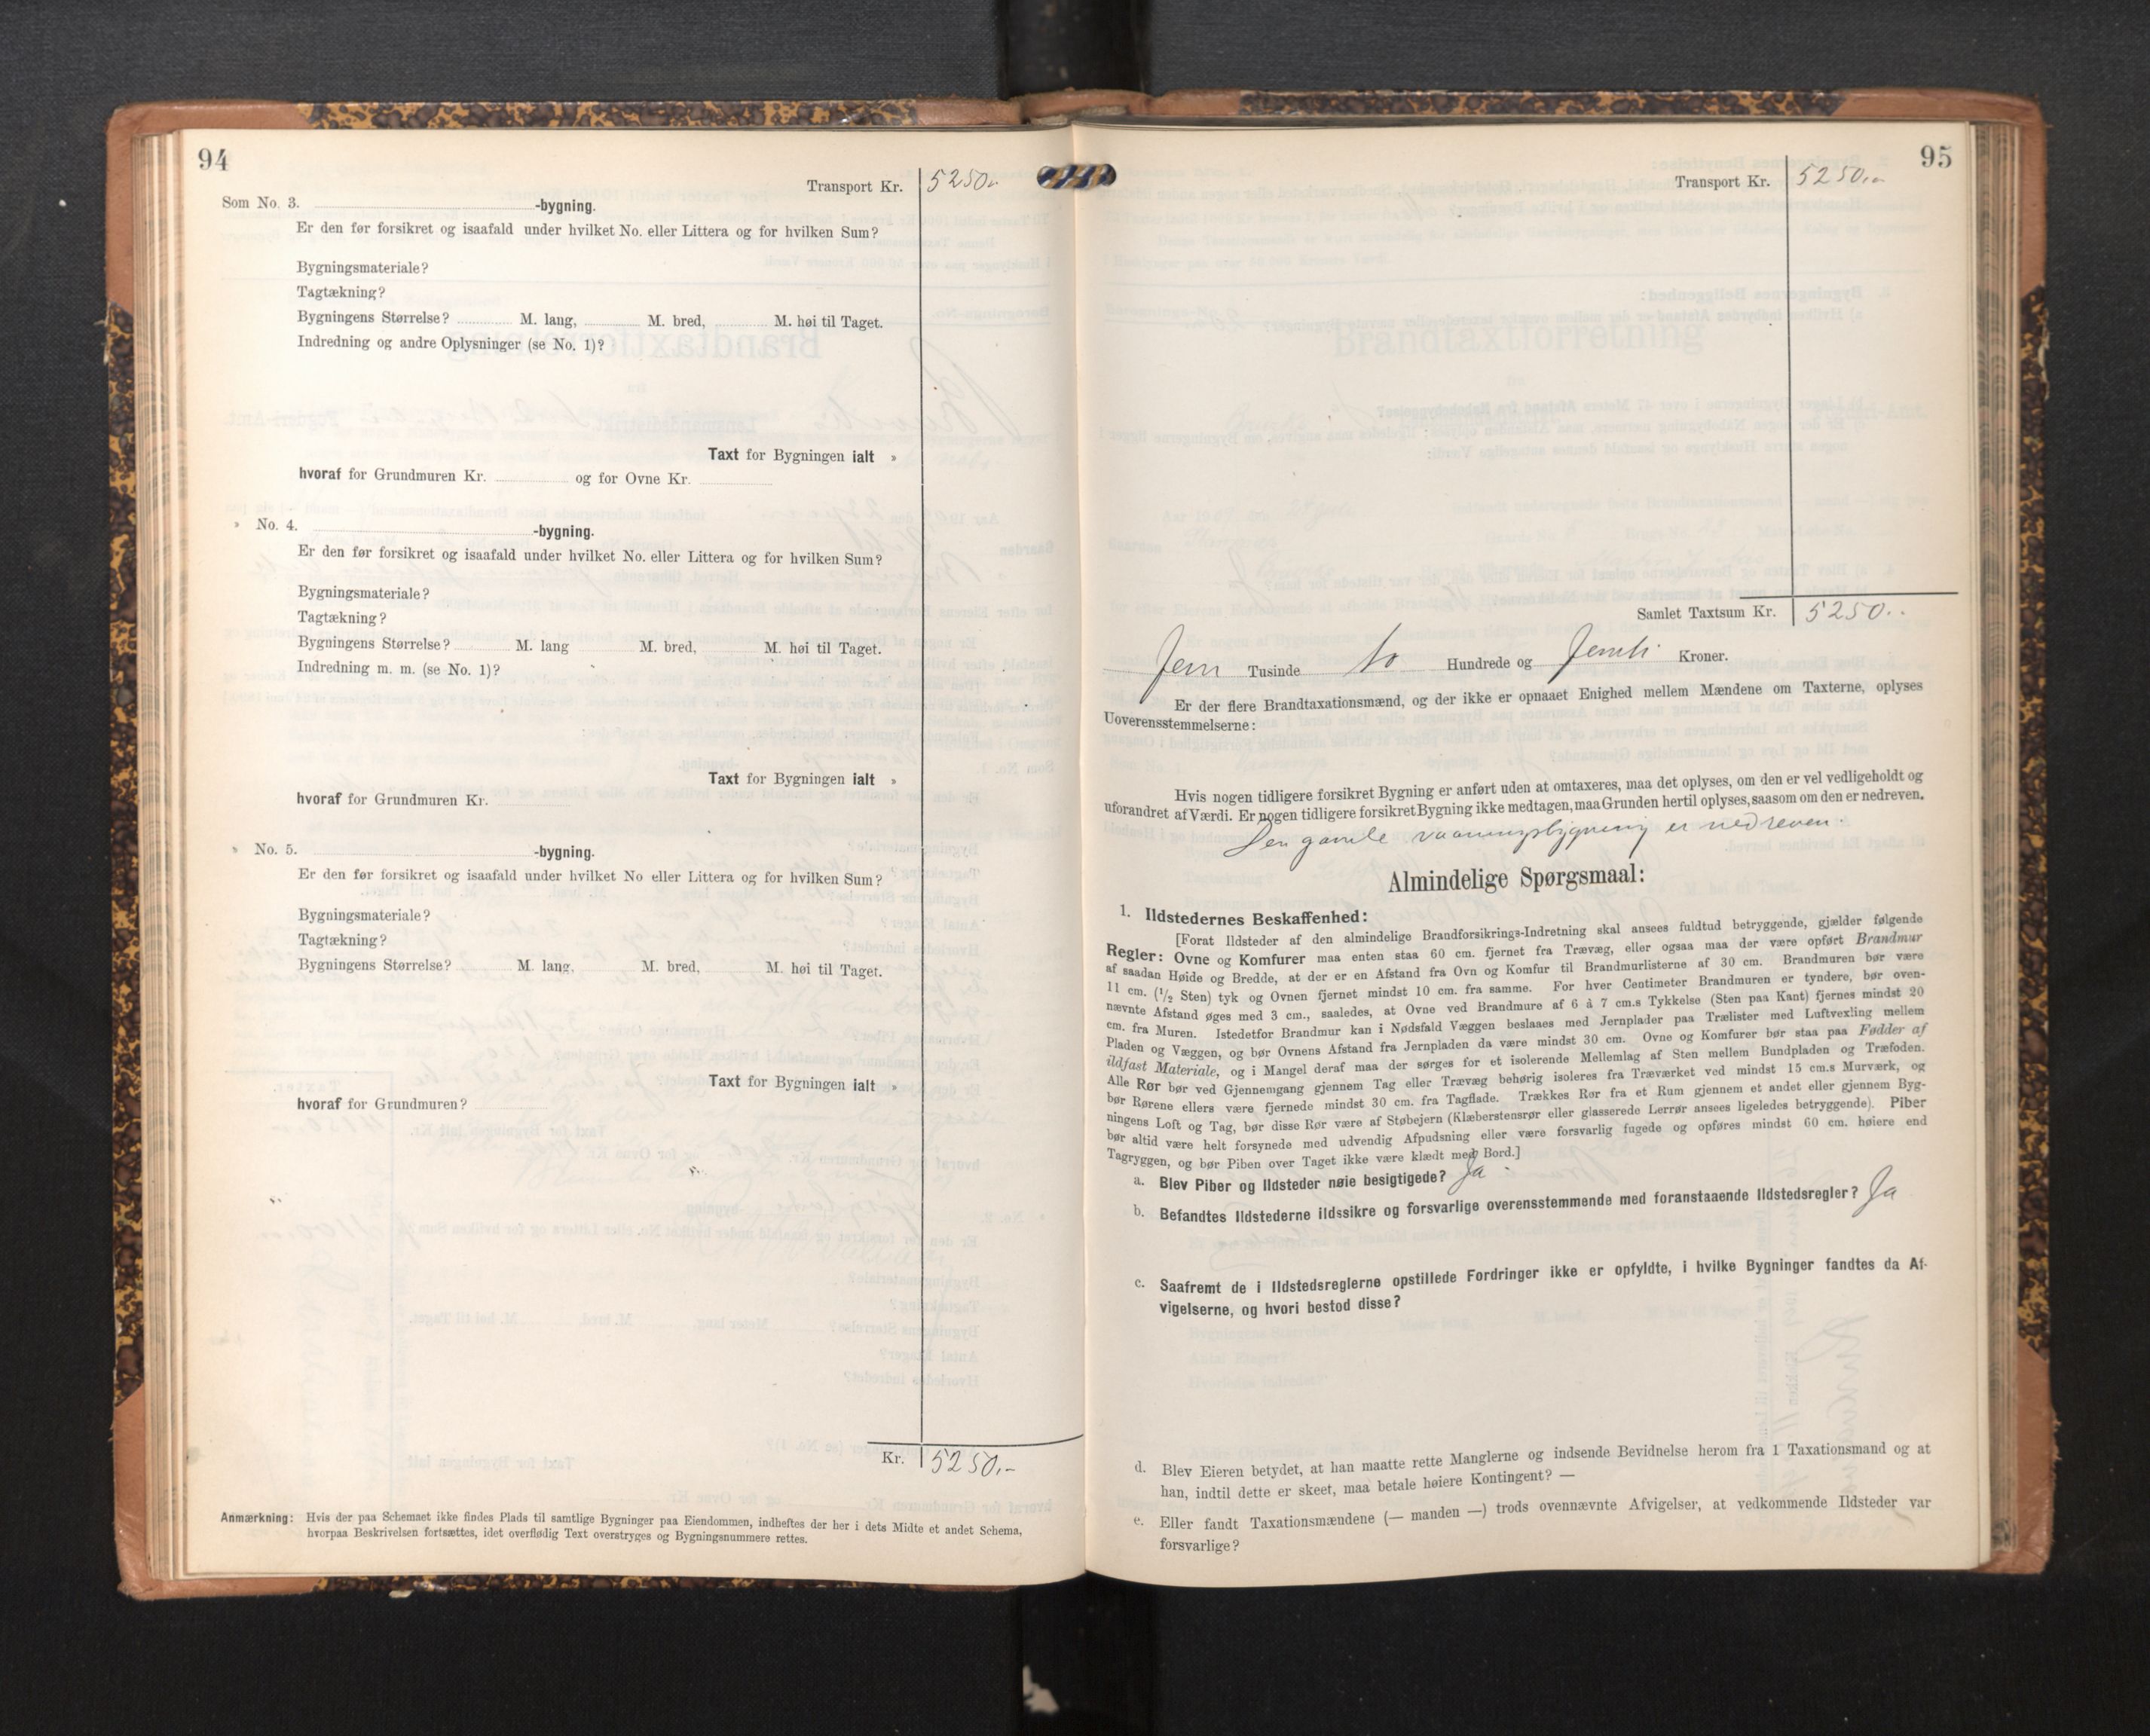 94
Transport Kr. 5250.-
Som No. 3. -bygning.
Er den før forsikret og isaafald under hvilket No. eller Littera og for hvilken Sum?
Bygningsmateriale?
Tagtækning?
Bygningens Størrelse? M. lang, M. bred, M. høi til Taget.
Indredning og andre Oplysninger (se No. 1)?
Taxt for Bygningen ialt »
hvoraf for Grundmuren Kr. og for Ovne Kr.
» No. 4. -bygning.
Er den før forsikret og isaafald under hvilket No. eller Littera og for hvilken Sum?
Bygningsmateriale?
Tagtækning?
Bygningens Størrelse? M. lang M. bred, M. høi til Taget.
Indredning m. m. (se No. 1)?
Taxt for Bygningen ialt »
hvoraf for Grundmuren Kr.
» No. 5. -bygning.
Er den før forsikret og isaafald under hvilket No eller Littera og for hvilken Sum?
Bygningsmateriale?
Tagtækning?
Bygningens Størrelse? M. lang, M. bred, M. høi til Taget.
Taxt for Bygningen ialt »
hvoraf for Grundmuren?
Kr. 5250.-
Anmærkning: Hvis der paa Schemaet ikke findes Plads til samtlige Bygninger paa Eiendommen, indheftes der her i dets Midte et andet Schema,
hvorpaa Beskrivelsen fortsættes, idet overflødig Text overstryges og Bygningsnummere rettes.
95
Transport Kr. 5250.-
Samlet Taxtsum Kr. 5250..
Fem Tusinde to Hundrede og femti Kroner.
Er der flere Brandtaxationsmænd, og der ikke er opnaaet Enighed mellem Mændene om Taxterne, oplyses
Uoverensstemmelserne:
Hvis nogen tidligere forsikret Bygning er anført uden at omtaxeres, maa det oplyses, om den er vel vedligeholdt og
uforandret af Værdi. Er nogen tidligere forsikret Bygning ikke medtagen, maa Grunden hertil oplyses, saasom om den er nedreven.
Den gamle vaaningsbygning er nedreven.
Almindelige Spørgsmaal:
1. Ildstedernes Beskaffenhed:
[Forat Ildsteder af den almindelige Brandforsikrings-Indretning skal ansees fuldtud betryggende, gjælder følgende
Regler: Ovne og Komfurer maa enten staa 60 cm. fjernet fra Trævæg, eller ogsaa maa der være opført Brandmur
af saadan Høide og Bredde, at der er en Afstand fra Ovn og Komfur til Brandmurlisterne af 30 cm. Brandmuren bør være
11 cm. (1/2 Sten) tyk og Ovnen fjernet mindst 10 cm. fra samme. For hver Centimeter Brandmuren er tyndere, bør oven-
nævnte Afstand øges med 3 cm., saaledes, at Ovne ved Brandmure af 6 à 7 cm.s Tykkelse (Sten paa Kant) fjernes mindst 20
cm. fra Muren. Istedetfor Brandmur kan i Nødsfald Væggen beslaaes med Jernplader paa Trælister med Luftvexling mellem
Pladen og Væggen, og bør Ovnens Afstand fra Jernpladen da være mindst 30 cm. Ovne og Komfurer bør staa paa Fødder af
ildfast Materiale, og i Mangel deraf maa der sørges for et isolerende Mellemlag af Sten mellem Bundpladen og Træfoden.
Alle Rør bør ved Gjennemgang gjennem Tag eller Trævæg behørig isoleres fra Træværket ved mindst 15 cm.s Murværk, og
bør Rørene ellers være fjernede mindst 30 cm. fra Tagflade. Trækkes Rør fra et Rum gjennem et andet eller gjennem Byg-
ningens Loft og Tag, bør disse Rør være af Støbejern (Klæberstensrør eller glasserede Lerrør ansees ligeledes betryggende). Piber
bør altid være helt forsynede med udvendig Afpudsning eller være forsvarlig fugede og opføres mindst 60 cm. høiere end
Tagryggen, og bør Piben over Taget ikke være klædt med Bord.]
a. Blev Piber og Ildsteder nøie besigtigede? Ja.
b. Befandtes Ildstederne ildssikre og forsvarlige overensstemmende med foranstaaende Ildstedsregler? Ja
c. Saafremt de i Ildstedsreglerne opstillede Fordringer ikke er opfyldte, i hvilke Bygninger fandtes da Af-
vigelserne, og hvori bestod disse?
d. Blev Eieren betydet, at han maatte rette Manglerne og indsende Bevidnelse herom fra 1 Taxationsmand og at
han, indtil dette er skeet, maa betale høiere Kontingent? —
e. Eller fandt Taxationsmændene (— manden —) trods ovennævnte Afvigelser, at vedkommende Ildsteder var
forsvarlige?